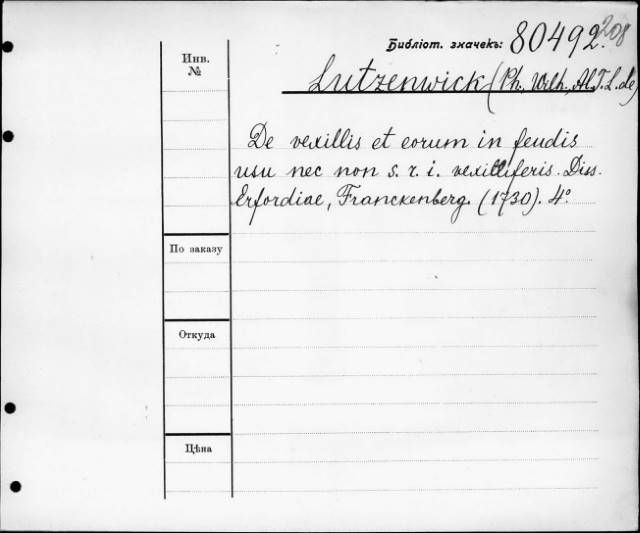 Библіот. значекъ: 80492.208
Инв. №
Lutzenwick (Ph. Wilh. Al. T. L. de)
De vexillis et eorum in feudis
usu nec non s. r. i. vexilliferis. Diss.
Erfordiae, Franckenberg. (1730). 4°.
По заказу
Откуда
Цѣна